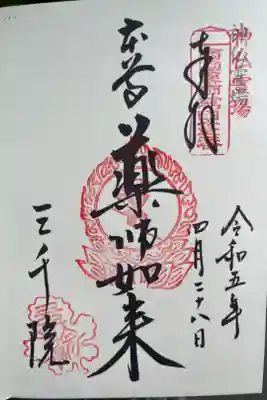 神仏霊場
奉拝
令和五年
四月二十八日
本尊
薬師如来
三千院